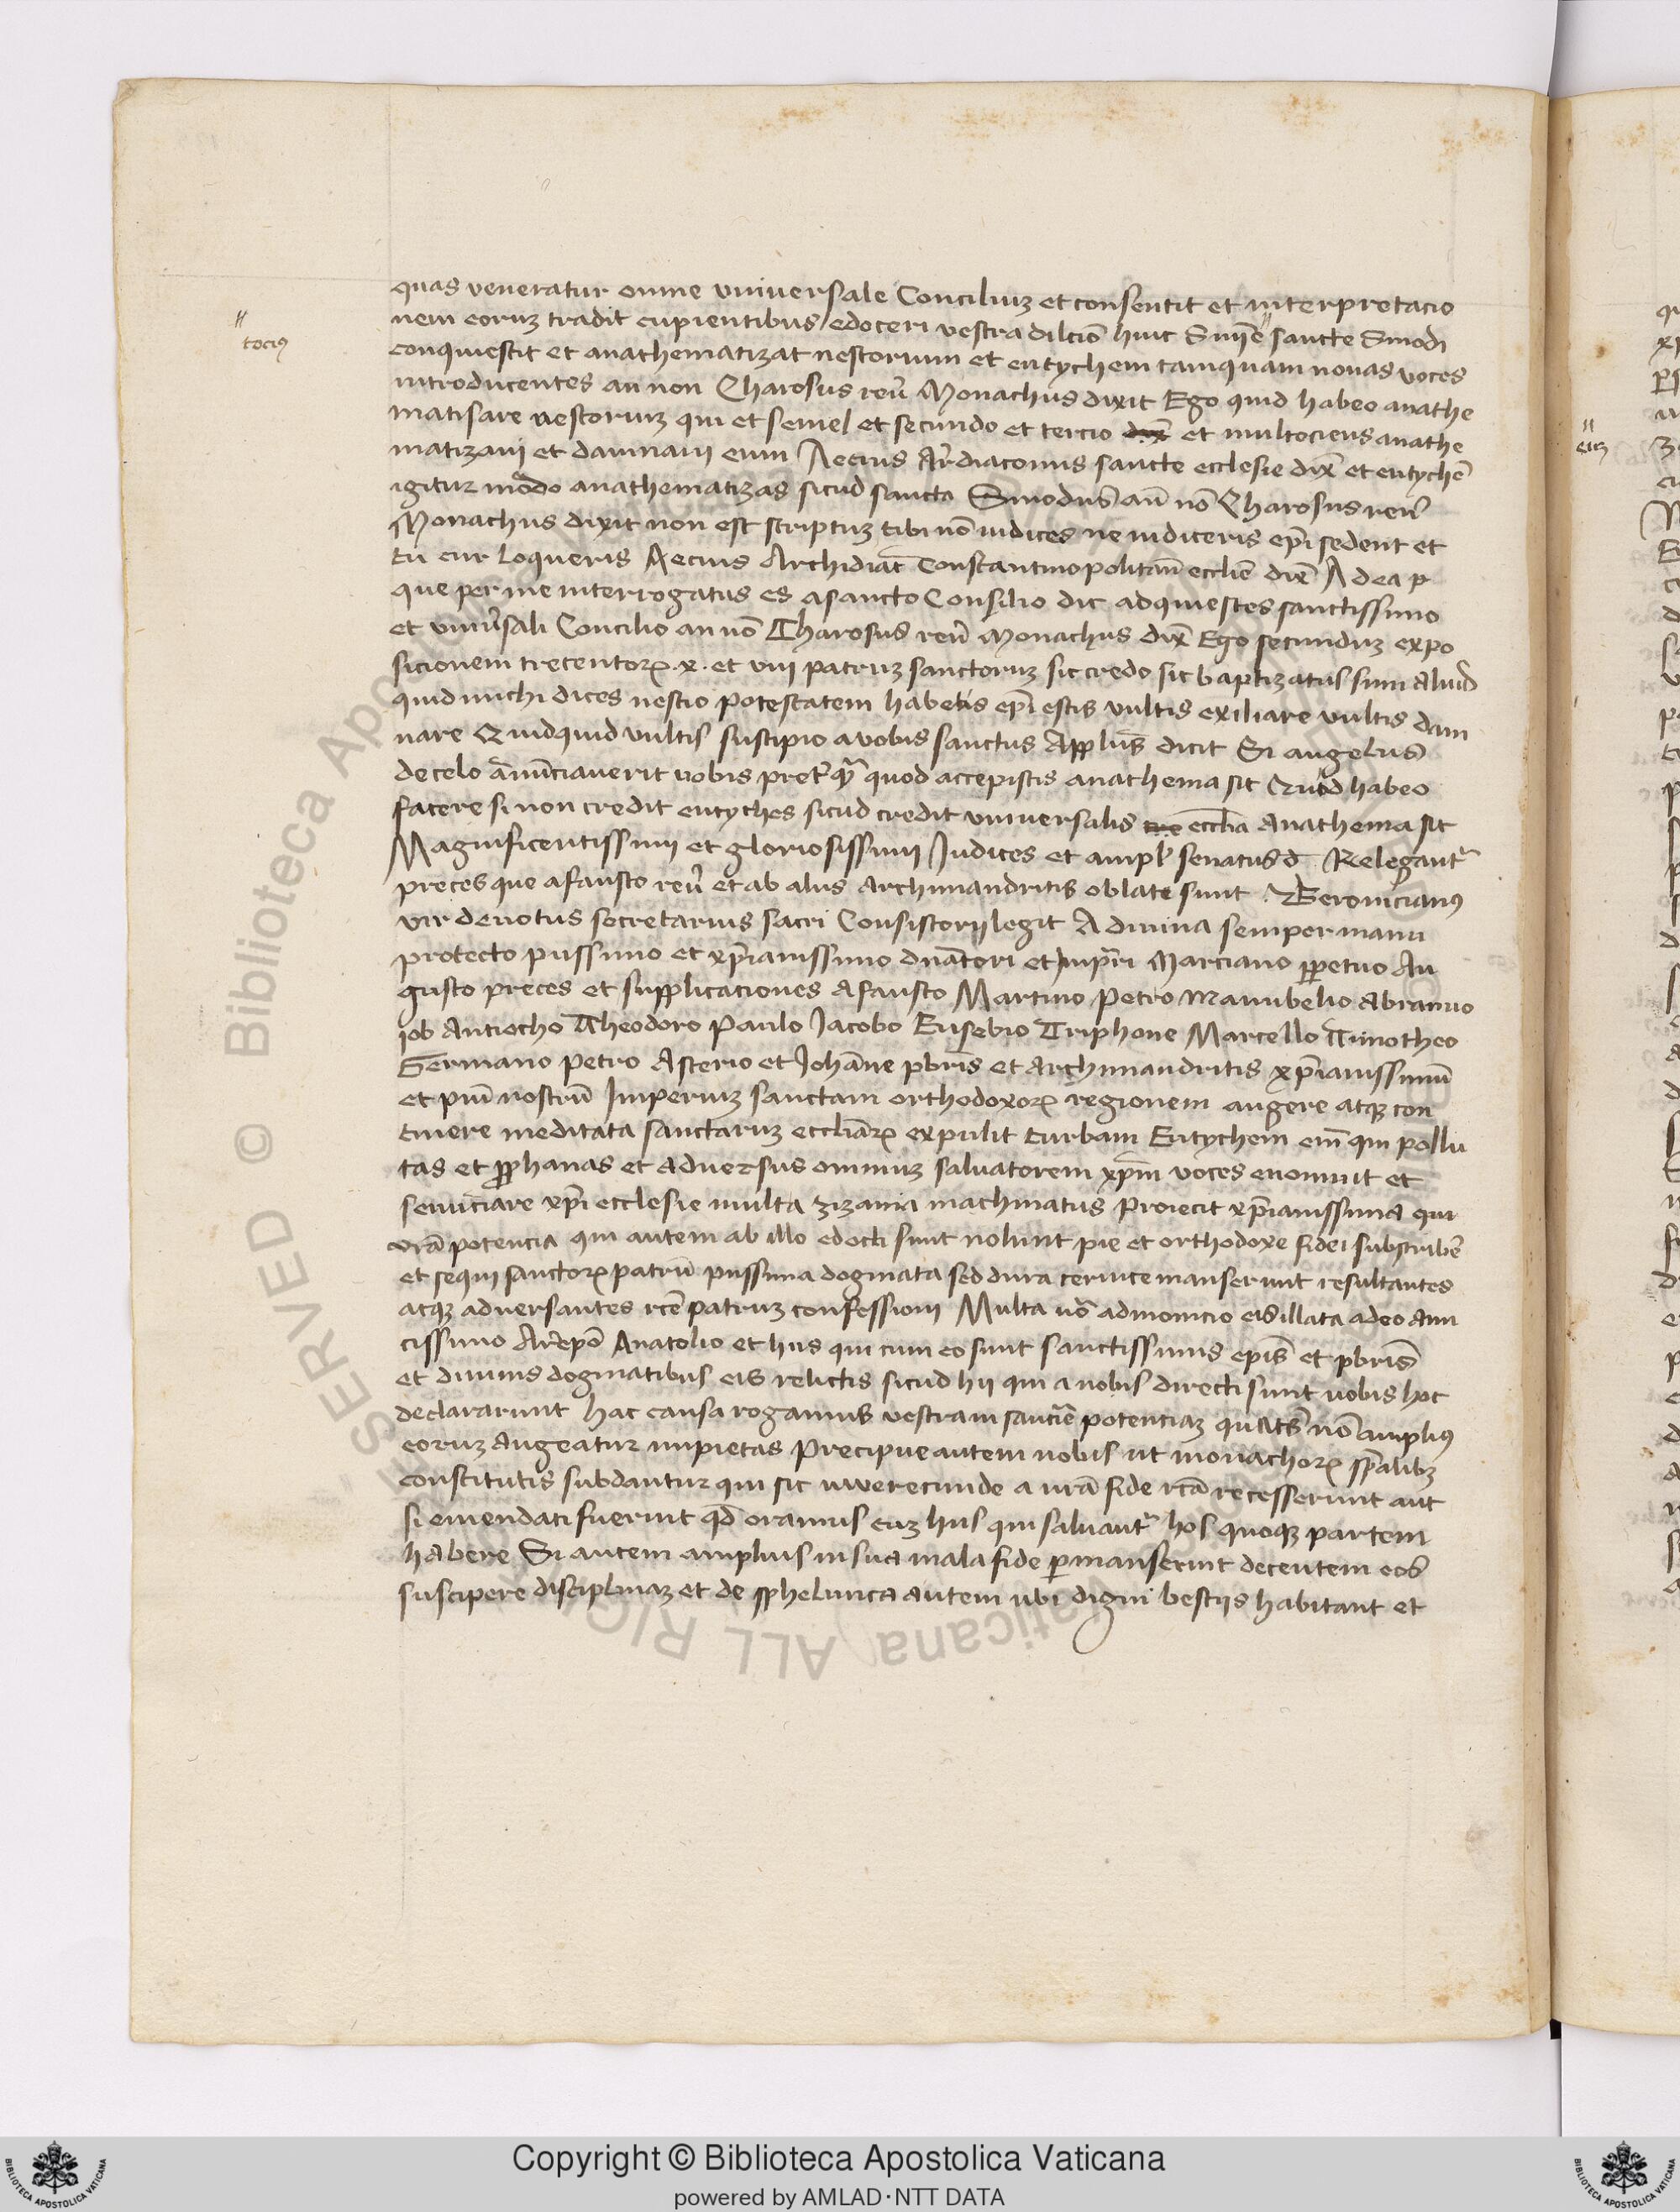 quas veneratur omne vniuersale Conciliuz et consentit et interpretacio
nem eoruz tradit cupientibus edoceri vestra dilcio̅ huic sancte Sinodi
tociꝰ
conquiescit et anathematizat nestorium et eutychem tamquam nouas voces
introducentes an non Charosus reu̅ Monachus dixit Ego quid habeo anathe
matisare nestoriuz qui et semel et secundo et tercio dix̅ et multociens anathe
matizaui et damnaui eum Aecius Ar̅diaconus sancte ecclesie dix̅ et eutyche̅
igitur modo anathematizas sicud sancta Sinodus an̅ no̅ Charosus reu̅
Monachus dixit non est scriptuz tibi no̅ iudices ne iudiceris ep̅i sedent et
tu cur loqueris Aecius Archidiac̅ Constantinopolitan̅ eccl̅ie dix̅ Ad ea
que per me interrogatus es a sancto Consilio dic adquiesces sanctissimo
et vniu̅sali Concilio an no̅ Tharosus reu̅ Monachus dix̅ Ego secunduz expo
sicionem trecentoꝝ .x. et viii patruz sanctoruz sic credo sic baptizatus sum aliud
quid michi dices nestio potestatem habetis ep̅i estis vultis exiliare vultis dam
nare Quidquid vultis suscipio a vobis sanctus Applus̅ dicit Si angelus
de celo a̅nu̅ciauerit vobis quod accepistis anathema sit Quid habeo
facere si non credit eutyches sicud credit vniuersalis eccl̅ia anathema sit
Magnificentissimi et gloriosissimi Judices et ampl̅ senatus d̅. Relegant᷑
preces que a fausto reu̅ et ab aliis archimandritis oblate sunt. Veronicianꝰ
vir deuotus secretarius sacri Consistorij legit A diuina semper manu
protecto piissimo et xp̅ianissimo et Marciano ꝑpetuo Au
gusto preces et supplicaciones a fausto Martino Petro Manubelio Abramio
Job Antiocho Theodoro Paulo Jacobo Eusebio Triphone Marcello Timotheo
Germano Petro Asterio et Joha̅ne pbris̅ et archimandritis xp̅ianissimu̅
et piu̅ nostru̅ Imperiuz sanctam orthodoxoꝝ regionem augere atqꝫ con
tinere meditata sanctaruz eccl̅iaꝝ expulit turbam Eutychem em̅ qui pollu
tas et prophanas et aduersus omniuz saluatorem xp̅m voces euomuit et
xp̅i ecclesie multa zizania machinatus Proiecit xp̅ianissima qui
vr̅a potencia qui autem ab illo edocti sunt nolunt pie et orthodoxe fidei subscribe̅
et sequi sanctoꝝ patru̅ piissima dogmata sed dura ceruice manserunt resultantes
atqꝫ aduersantes rc̅e patruz confessioni Multa u̅o admonicio eis illata a deo ami
cissimo Archiep̅o Anatolio et hiis qui cum eo sunt sanctissimis ep̅is et pbris̅
et diuinis dogmatibus eis relictis sicud hij qui a nobis directi sunt uobis hoc
declararunt hac causa rogamus vestram potenciaz no̅ ampliꝰ
eoruz augeatur impietas Precipue autem nobis ut monachoꝝ
constitutis subdantur qui sic inverecunde a vr̅a fide rc̅a recesserunt aut
si emendati fuerint qd̅ oramus cuz hiis qui saluant᷑ hos quoqꝫ partem
habere Si autem amplius in sua mala fide ꝑmanserint decentem eos
suscipere disciplinaz et de sphelunca autem ubi digni bestijs habitant et
eiꝰ